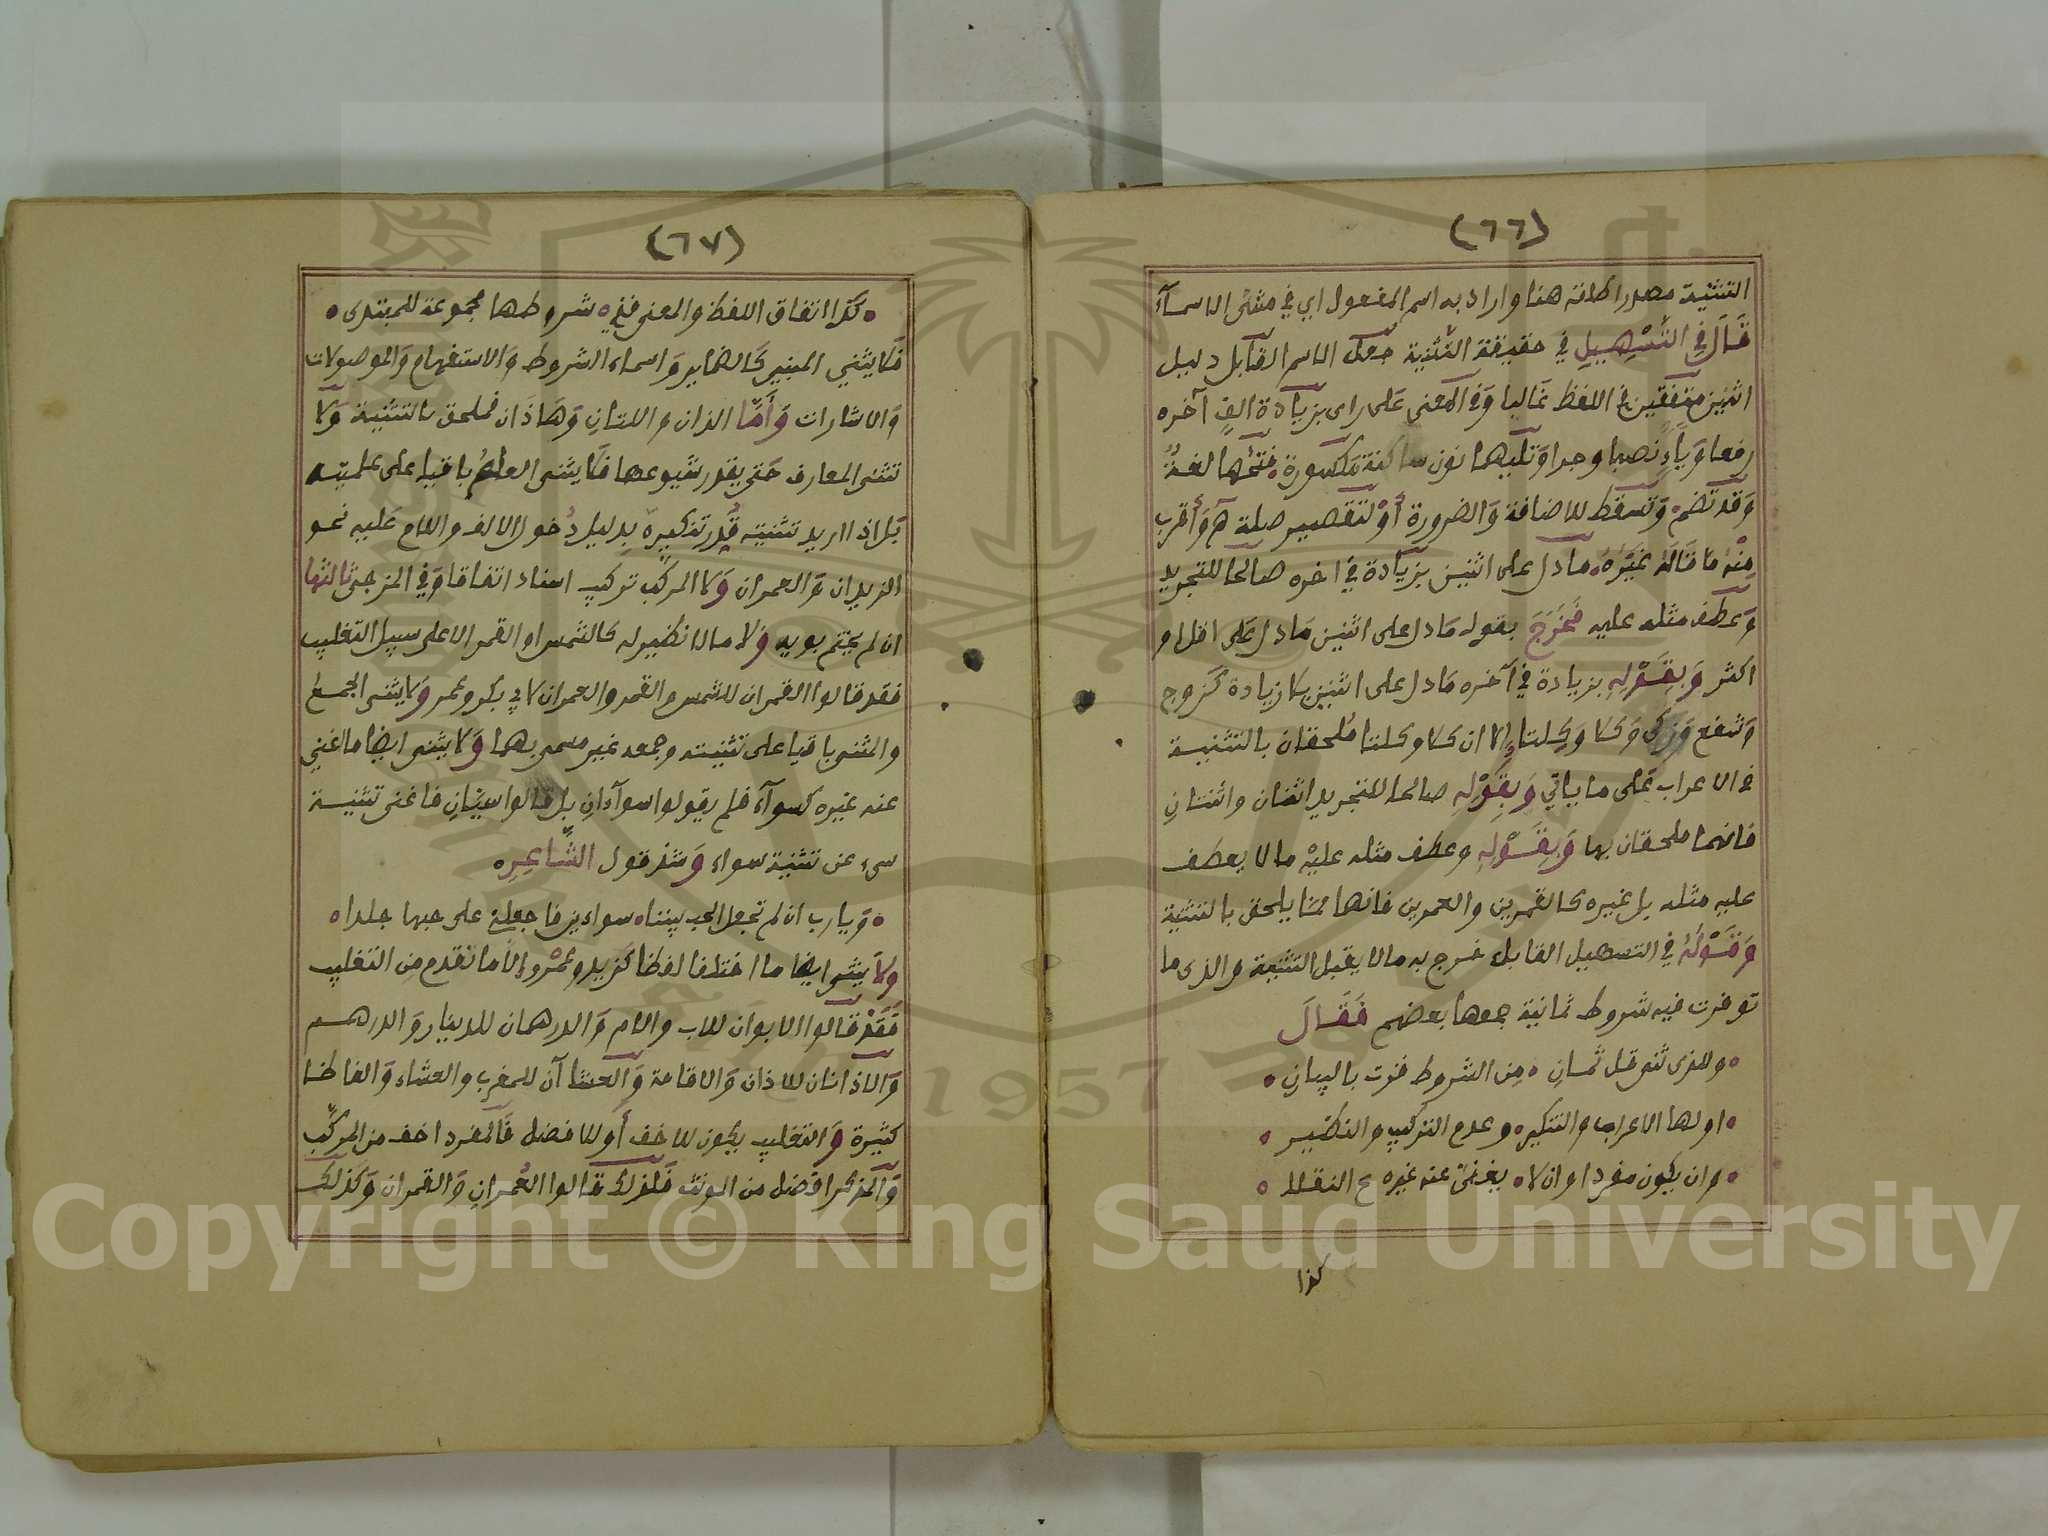 (٦٦)
التثنية مصدرا كانه هنا واراد به اسم المفعول اي في مثنى الاسمآء
قَالَ في التَّسْهِيلِ في حقيقة التثنية جعل الاسم القابل دليل
اثنين متفقين في اللفظ غالبا وَفي المعنى على راى بزيادة الفٍ آخره
رفعا وَياءٍ نصبا وجرا وَتليهما نون ساكنة مكسورة فتحها لغةٌ
وَقد تضم وَتسقط للاضافة وَالضرورة أَوْ لتقصير صلة هوَ أقرب
مِنْهُ مَا قَالَهُ غَيْرُهُ مادل على اثنين بزيَادة في اخره صالحا للتجريد
وَعطف مثله عليه فخَرَجَ بقوله مَادل على اثنين مَادل عَلى اقل او
اكثر وَبِقَوْلِهِ بزيادة في آخره مَادل على اثنين بلا زيادة كَزوج
وَشفع وَزكى وَكلا وَكلتا إلا ان كلا وكلتا مُلحقان بالتثنية
في الاعراب عَلى ما ياتي وَبِقَوْلِهِ صالحا للتجريد اثنان واثنتانِ
فانهما ملحقان بها وَبِقَوْلِهِ وعطف مثله عليْهِ مالا يعطف
عليهِ مثله بل غيره كالقمرين والعمرين فانهما مما يلحق بالتثنية
وَقَوْلُهُ في التسهيل القابل خرج به مالا يقبل التثنية والذى ما
توفرت فيه شروط ثمانية جمعها بعضهم فَقَالَ
وللذى ثنو قل ثمانِ مِن الشروط فزت بالبيانِ
اولها الاعراب والتنكير وعدم التركيب والنظير
وان يكون مفردا وان لا يغنى عنه غيره النقلا
كذا
(٦٧)
كذا اتفاق اللفظ والمعنى فذي شروطها مجموعة للمبتدى
فَلا يثني المبني كَالضماير وَاسماء الشروط وَالاستفهام وَالموصولات
وَالاشارات وَأَمَّا الذان واللتانِ وَهَاذَان فملحق بالتثنية وَلا
تثنى المعارف حَتى يقدر شيوعها فَلا يثنى العلمُ باقيا على علميته
بَل اذا اريد تثنيته قُدِر تنكيره بدليل دُخول الالف واللام عَليه نحو
الزيدان وَالعمران وَلا المركب تركيب اسناد اتفاقا وَفي المزجي ثالثها
ان لم يختم بويه وَلا مالا نظير له كالشمس او القمر الا على سبيل التغليب
فقد قالوا القمران للشمس والقمر والعمران لابي بكر وعمر وَلا يثنى الجمع
والمثنى باقيا على تثنيته وجمعه غير مسمى بهما وَلا يثنى ايضا ما اغني
عنه غيره كسوآء فلم يقولوا سوآءانِ بل قالوا سيّانِ فاغنى تثنية
سيء عن تثنية سواء وَشذ قول الشَّاعِرِ
وَيارب ان لم تجعل الحب بيننا سواءين فاجعلني على حبها جلدا
وَلا يثنوا ايضا ما اختلفا لفظا كزيد وعمْرو إلاَّ ما تقدم مِن التغليب
فَقَدْ قالوا الابوَان للاب والام وَالدرهمان للدينار وَالدرهم
وَالاذانان للاذان وَالاقامة وَالعشاآن للمغرب والعشاء وَالفاظا
كثيرة وَالتغليب يكون للاخف أَوللافضل فَالمفرد اخف من المركب
وَالمذكر افضل من المونث فَلذلك قالوا العُمرانِ وَالقمران وَكذلك
1957
Copyright © King Saud University